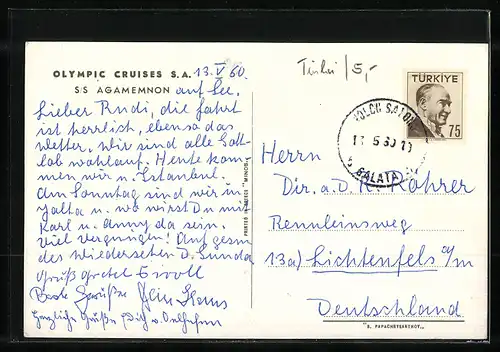 OLYMPIC CRUISES S.A. 13. V 60.
S/S AGAMEMNON auf See.
Lieber Rudi, die Fahrt
ist herrlich, ebenso das
Wetter. Wir sind alle Gott-
lob wohlauf. Heute kom
men wir n. Istanbul.
Am Sonntag sind wir in
Yalta u. wo wirst Du mit
Karl u. Anny da sein.
Viel Vergnügen! Auf gesun
des Wiedersehen d. Sunda
Gruß Gretel
Beste Grüße Hans
Herzliche Grüße Dich
PRINTED IN GREECE
Türkei /5,-
TÜRKİYE
75
YOLCU SALONU
13 5 60 19
GALATA
Herrn
Dir. a. D. K. Rährer
Rennleinsweg
13a) Lichtenfels a/m
Deutschland
"E. PAPACHRYSANTHOY"